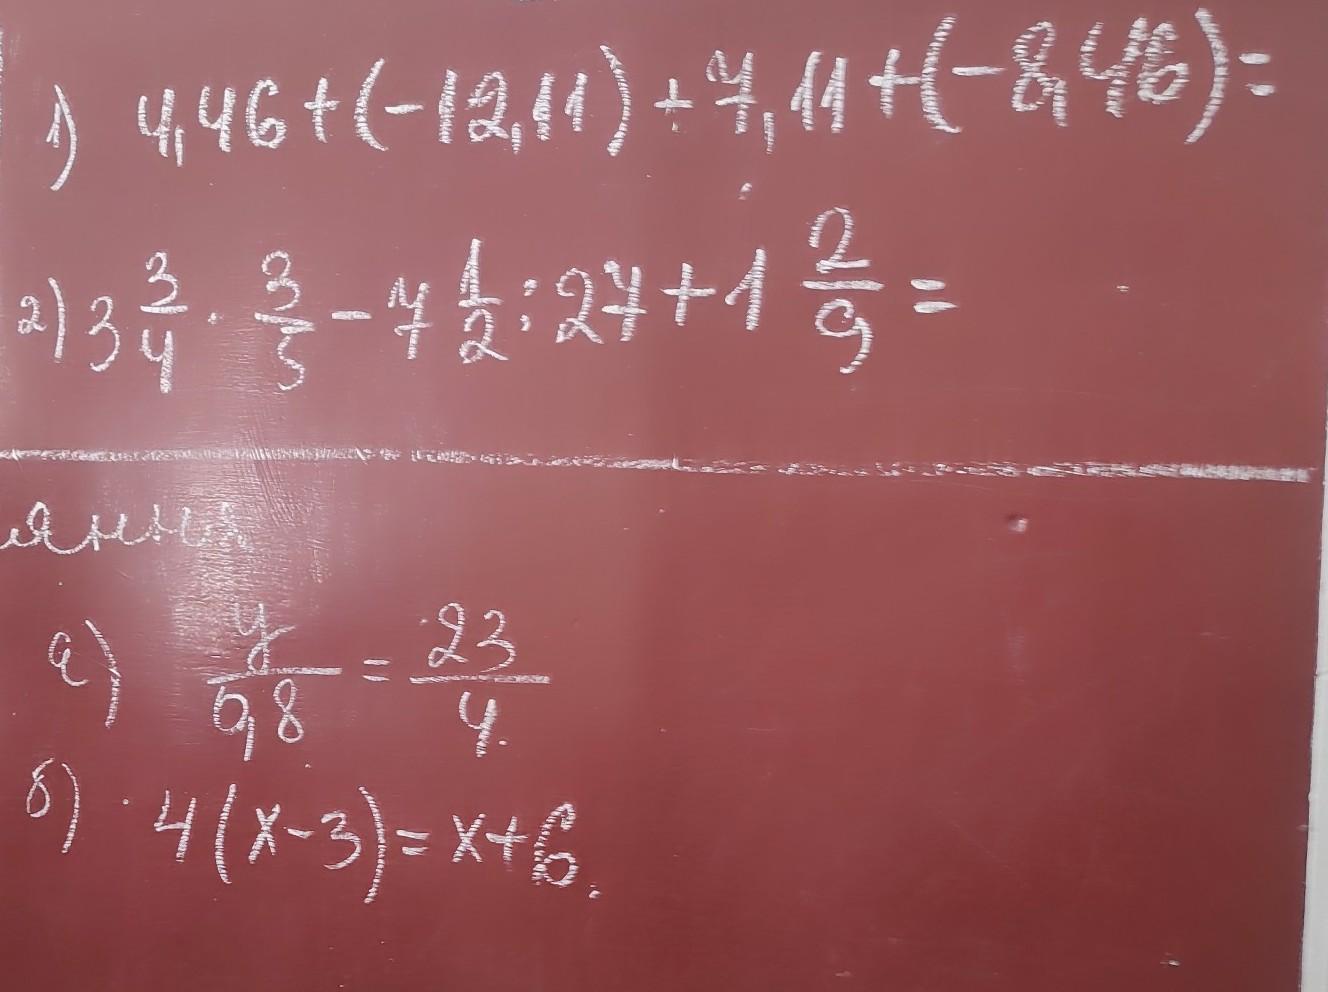 1) 4,46+(-12,11)+7,11+(-8,46)=
2) 3 3/4 · 3/5 - 7 1/2 : 27 + 1 2/9 =
а) y/0,8 = 23/4.
б) 4(x-3)=x+6.